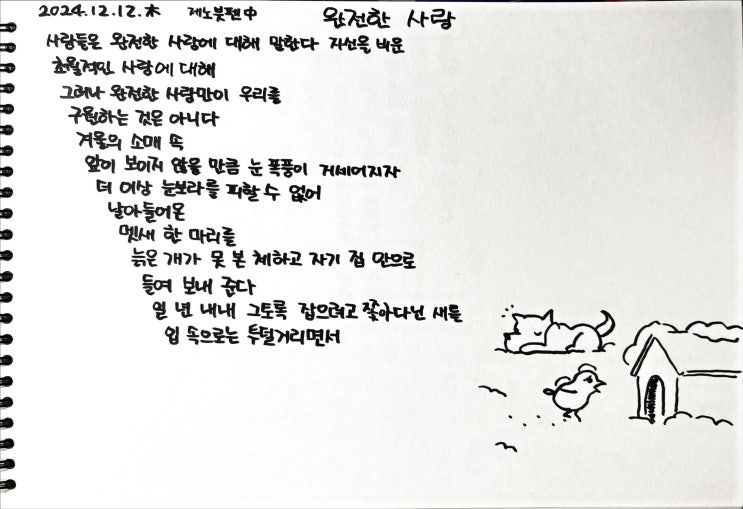 2024.12.12.木 제노붓펜中 완전한 사랑
사람들은 완전한 사랑에 대해 말한다 자선을 베푼
초월적인 사랑에 대해
그러나 완전한 사랑만이 우리를
구원하는 것은 아니다
겨울의 소매 속
앞이 보이지 않을 만큼 눈 폭풍이 거세어지자
더 이상 눈보라를 피할 수 없어
날아들어온
멧새 한 마리를
늙은 개가 못 본 체하고 자기 집 안으로
들여 보내 준다
일 년 내내 그토록 잡으려고 쫓아다닌 새를
입 속으로는 투덜거리면서